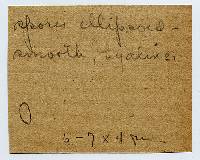 spores ellipsoid -
smooth, hyaline.
6-7 x 4 µm